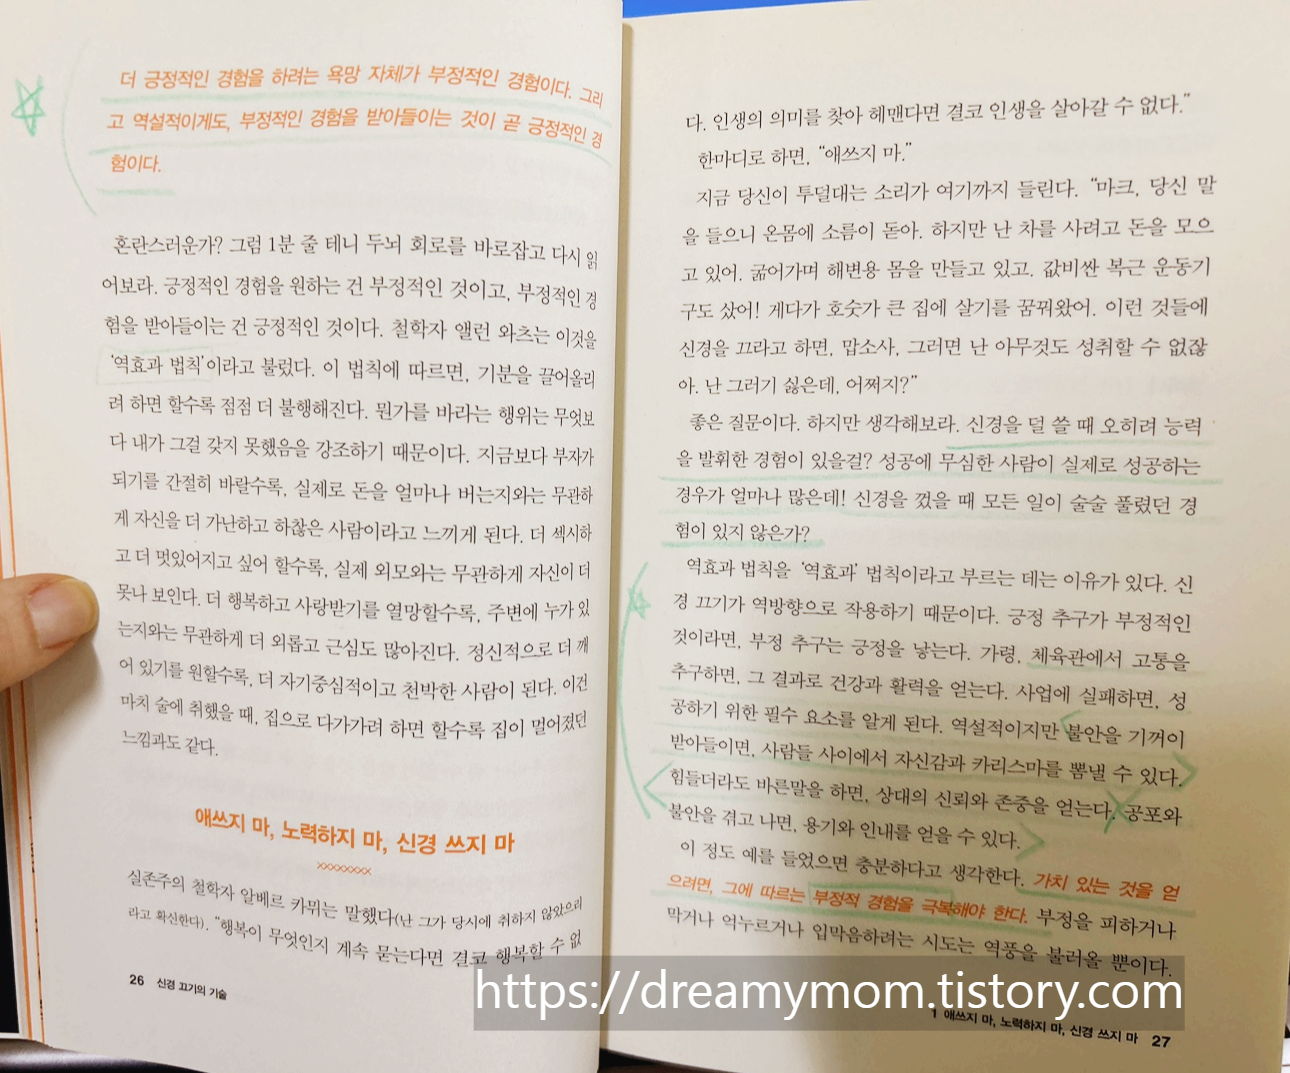 더 긍정적인 경험을 하려는 욕망 자체가 부정적인 경험이다. 그리
고 역설적이게도, 부정적인 경험을 받아들이는 것이 곧 긍정적인 경
험이다.
혼란스러운가? 그럼 1분 줄 테니 두뇌 회로를 바로잡고 다시 읽
어보라. 긍정적인 경험을 원하는 건 부정적인 것이고, 부정적인 경
험을 받아들이는 건 긍정적인 것이다. 철학자 앨런 와츠는 이것을
‘역효과 법칙’이라고 불렀다. 이 법칙에 따르면, 기분을 끌어올리
려 하면 할수록 점점 더 불행해진다. 뭔가를 바라는 행위는 무엇보
다 내가 그걸 갖지 못했음을 강조하기 때문이다. 지금보다 부자가
되기를 간절히 바랄수록, 실제로 돈을 얼마나 버는지와는 무관하
게 자신을 더 가난하고 하찮은 사람이라고 느끼게 된다. 더 섹시하
고 더 멋있어지고 싶어 할수록, 실제 외모와는 무관하게 자신이 더
못나 보인다. 더 행복하고 사랑받기를 열망할수록, 주변에 누가 있
는지와는 무관하게 더 외롭고 근심도 많아진다. 정신적으로 더 깨
어 있기를 원할수록, 더 자기중심적이고 천박한 사람이 된다. 이건
마치 술에 취했을 때, 집으로 다가가려 하면 할수록 집이 멀어졌던
느낌과도 같다.
애쓰지 마, 노력하지 마, 신경 쓰지 마
실존주의 철학자 알베르 카뮈는 말했다(난 그가 당시에 취하지 않았으리
라고 확신한다). “행복이 무엇인지 계속 묻는다면 결코 행복할 수 없
26 신경 끄기의 기술
다. 인생의 의미를 찾아 헤맨다면 결코 인생을 살아갈 수 없다.”
한마디로 하면, “애쓰지 마.”
지금 당신이 투덜대는 소리가 여기까지 들린다. “마크, 당신 말
을 들으니 온몸에 소름이 돋아. 하지만 난 차를 사려고 돈을 모으
고 있어. 굶어가며 해변용 몸을 만들고 있고. 값비싼 복근 운동기
구도 샀어! 게다가 호숫가 큰 집에 살기를 꿈꿔왔어. 이런 것들에
신경을 끄라고 하면, 맙소사, 그러면 난 아무것도 성취할 수 없잖
아. 난 그러기 싫은데, 어쩌지?”
좋은 질문이다. 하지만 생각해보라. 신경을 덜 쓸 때 오히려 능력
을 발휘한 경험이 있을걸? 성공에 무심한 사람이 실제로 성공하는
경우가 얼마나 많은데! 신경을 껐을 때 모든 일이 술술 풀렸던 경
험이 있지 않은가?
역효과 법칙을 ‘역효과’ 법칙이라고 부르는 데는 이유가 있다. 신
경 끄기가 역방향으로 작용하기 때문이다. 긍정 추구가 부정적인
것이라면, 부정 추구는 긍정을 낳는다. 가령, 체육관에서 고통을
추구하면, 그 결과로 건강과 활력을 얻는다. 사업에 실패하면, 성
공하기 위한 필수 요소를 알게 된다. 역설적이지만 불안을 기꺼이
받아들이면, 사람들 사이에서 자신감과 카리스마를 뽐낼 수 있다.
힘들더라도 바른말을 하면, 상대의 신뢰와 존중을 얻는다. 공포와
불안을 겪고 나면, 용기와 인내를 얻을 수 있다.
이 정도 예를 들었으면 충분하다고 생각한다. 가치 있는 것을 얻
으려면, 그에 따르는 부정적 경험을 극복해야 한다. 부정을 피하거나
막거나 억누르거나 입막음하려는 시도는 역풍을 불러올 뿐이다.
https://dreamymom.tistory.com
1 애쓰지 마, 노력하지 마, 신경 쓰지 마 27